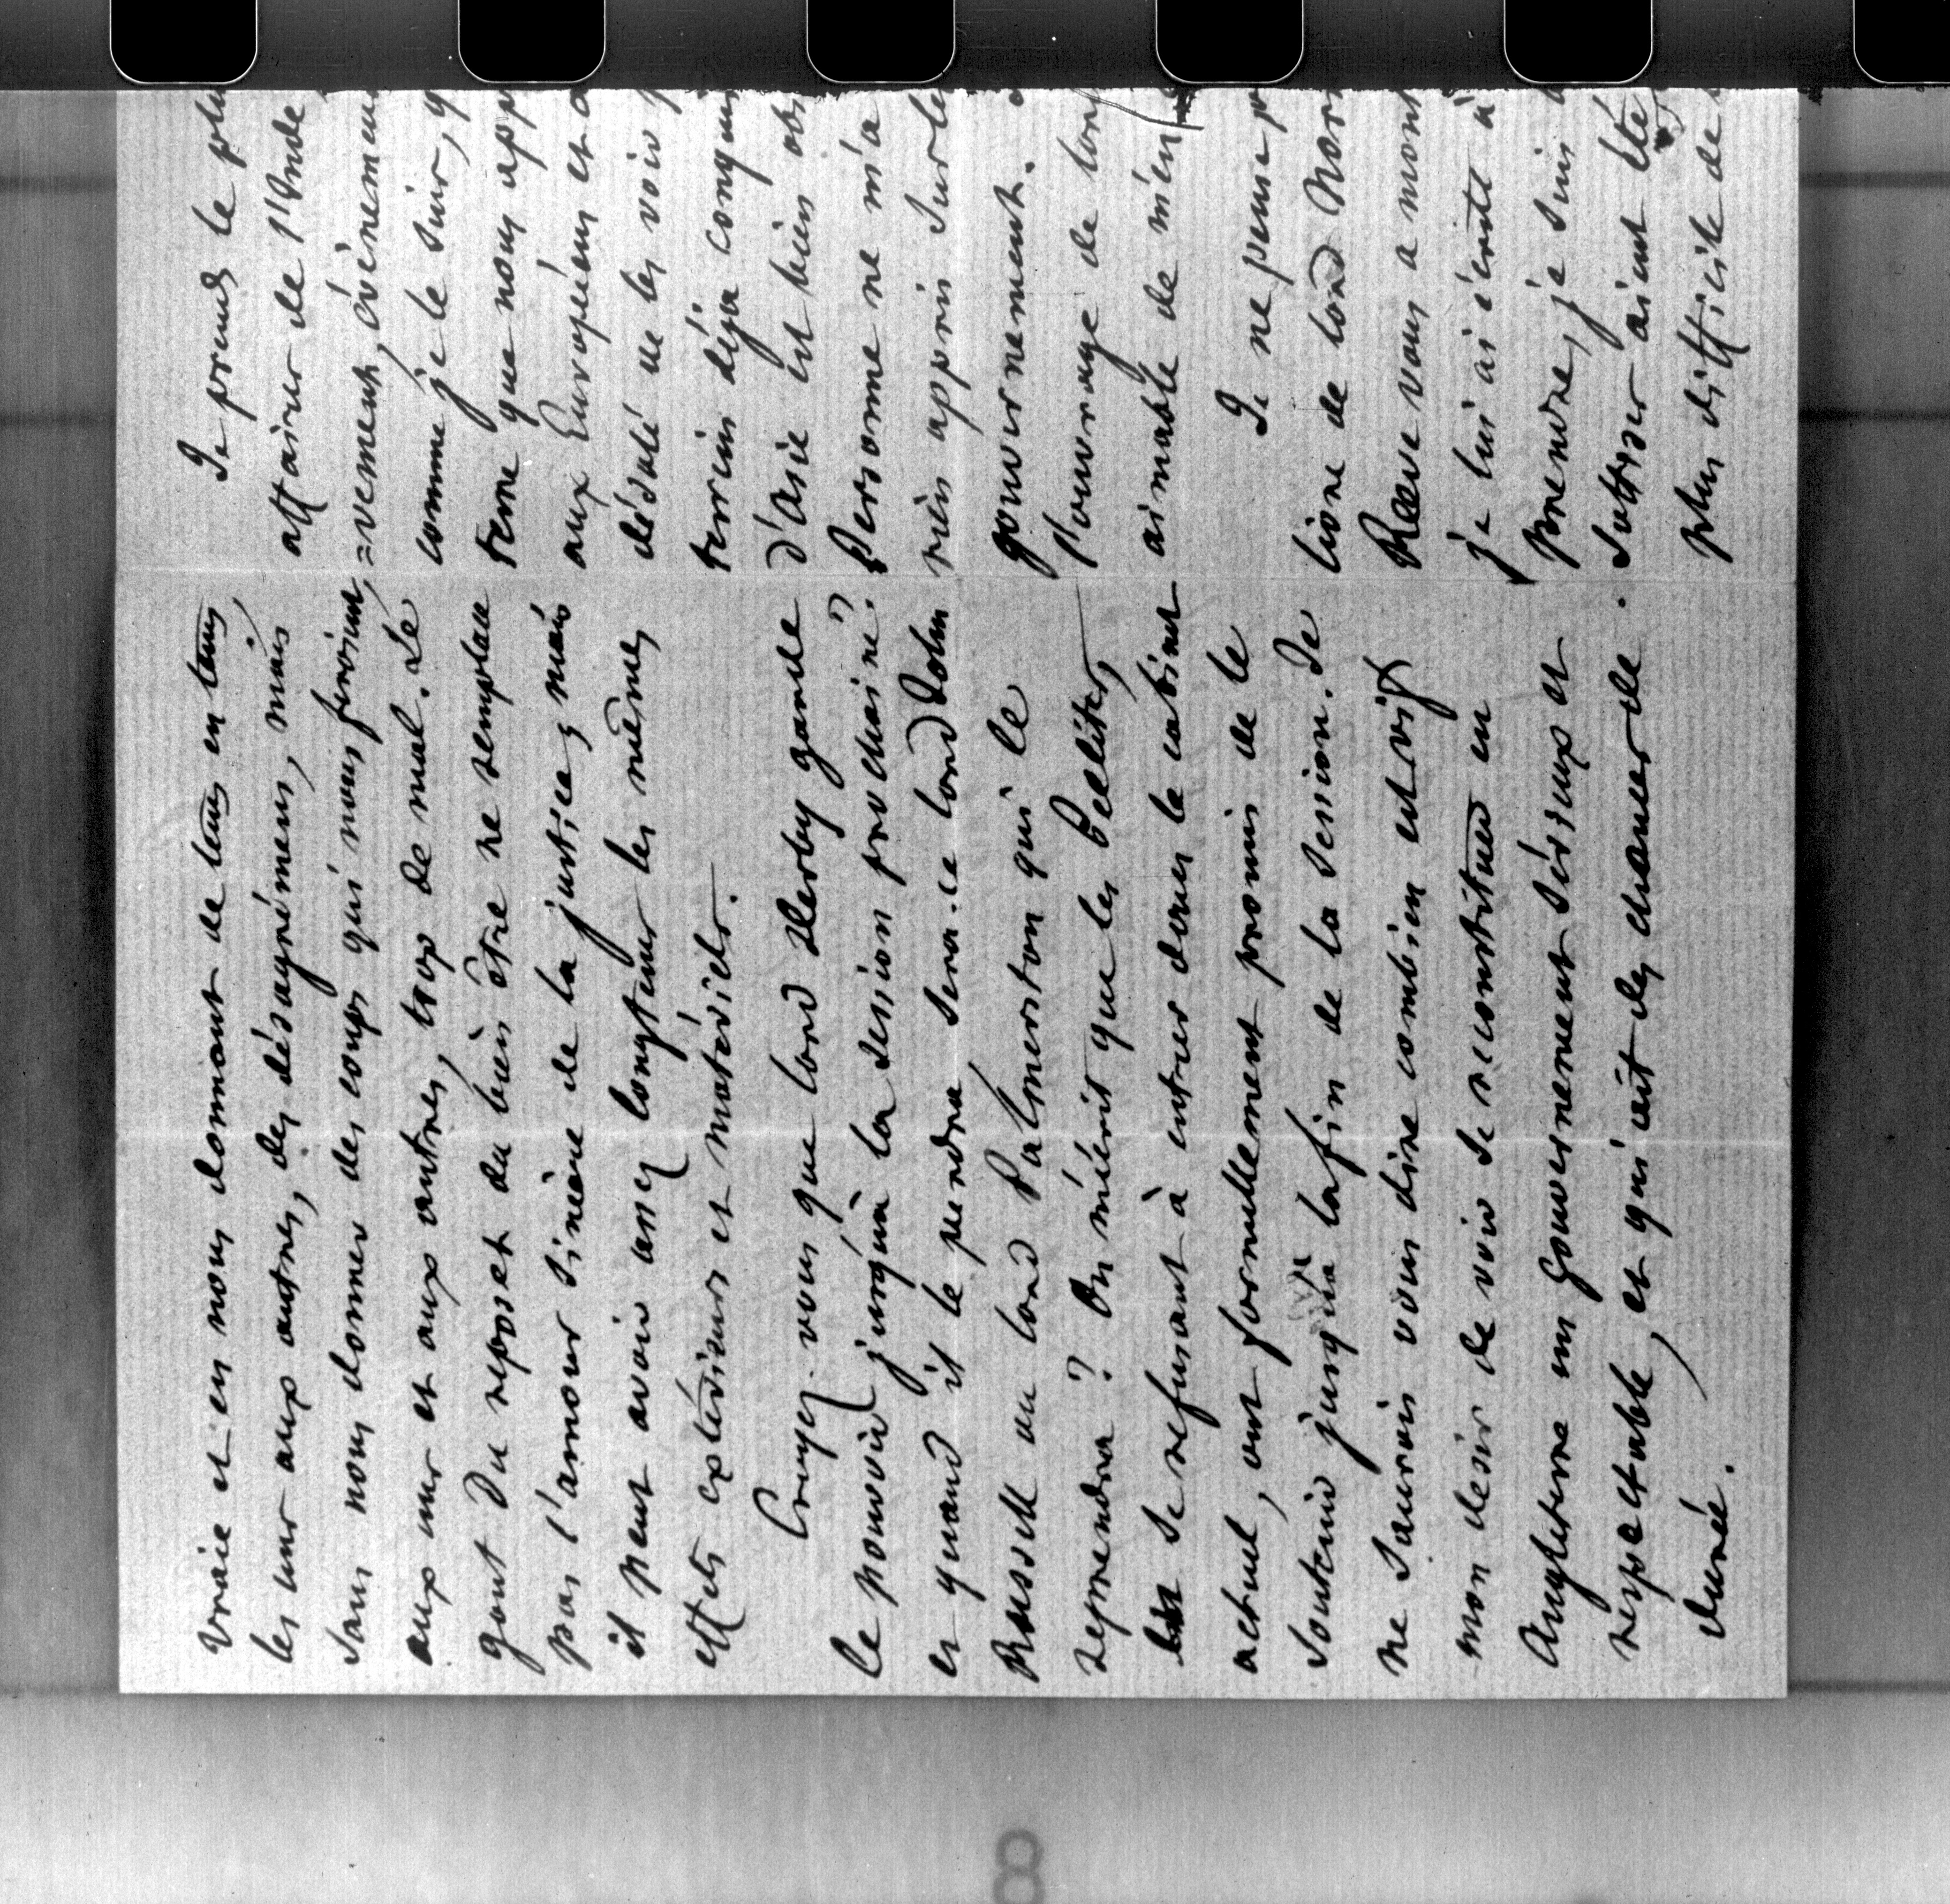 vraie et en nous donnant de tems en tems,
les uns aux autres, des désagrémens, mais
sans nous donner des coups qui nous feroient,
aux uns et aux autres, trop de mal. Le
gout du repos et du bien être ne remplace
pas l'amour sincère de la justice; mais
il peut avoir assez longtems les mêmes
effets extérieurs et matériels.
Croyez-vous que lord Derby garde
le pouvoir jusqu'à la session prochaine?
et quand il le perdra sera-ce lord John
Russell ou lord Palmerston qui le
reprendra? On m'écrit que les Peelites,
en se refusant à entrer dans le cabinet
actuel, ont formellement promis de le
soutenir jusqu'à la fin de la session. Je
ne saurois vous dire combien est vif
mon desir de voir se reconstituer en
Angleterre un gouvernement sérieux et
respectable, et qui ait des chances de
durée.
Je prends le plu
affaires de l'Inde,
=vement, évènemen
comme je le suis, q
terre que nous app
aux Européens et
désolé de les voir
terrein déja conqui
d'Asie est bien obs
Personne ne m'a
rien appris sur le
gouvernement.
l'ouvrage de lord
aimable de m'en
Je ne pense p
lione de lord Nor
Reeve vous a mont
je lui ai écrite à
prendre, je suis
Sutser aient été
plus difficile de
8